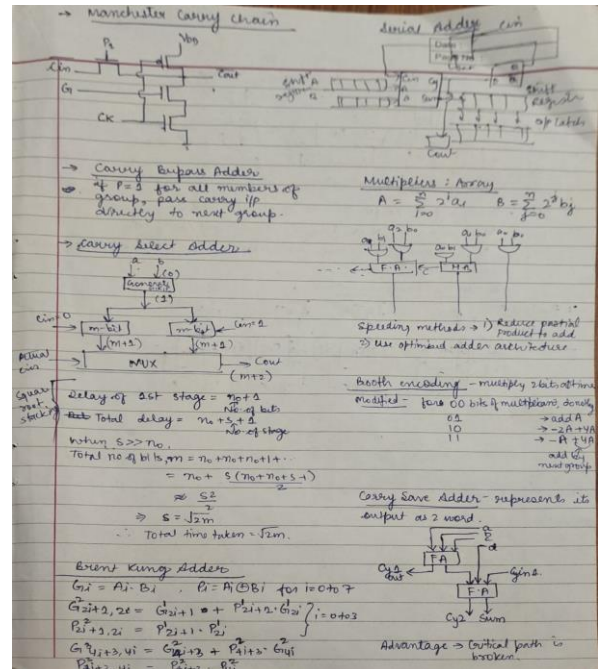 → Manchester Carry Chain
P2
VDD
Cin
Cout
G
CK
→ Carry Bypass Adder
if P=1 for all members of
group, pass carry i/p
directly to next group.
→ Carry Select Adder
a b
(0)
(1)
Cin=0
m-bit
m-bit
Cin=1
(m+1)
(m+1)
Actual
Cin
MUX
Cout
(m+2)
Square
root
stacking
Delay of 1st stage = n0+1
No of bits
Total delay = n0+s+1
No of stage
When s>>n0,
Total no of bits, m = n0+n0+n0+1+..
= n0 + s(n0+n0+s-1)
2
≈ s²
2
⇒ s = √2m
∴ Total time taken = √2m.
Brent Kung Adder
Gi = Ai·Bi , Pi = Ai⊕Bi for i=0 to 7
P²2i+1,2i = P¹2i+1 · P¹2i
i=0 to 3
Serial Adder
Cin
Shift
A
Sum
Shift
Register
o/p latch
Cout
Multipliers : Array
A = n∑i=0 2^i ai B = n∑j=0 2^j bj
F.A.
H.A.
Speeding methods → 1) Reduce partial
product to add
2) Use optimized adder architecture
Booth encoding - multiply 2 bits at time
Modified - for 00 bits of multiplicand, do nothing
01 → add A
10 → -2A + 4A
11 → -A + 4A
add by
next group
Carry Save Adder - represents its
output as 2 word.
d
FA
Cy1
out
F.A
Cin2
Cy2 Sum
Advantage → Critical path is
broken.